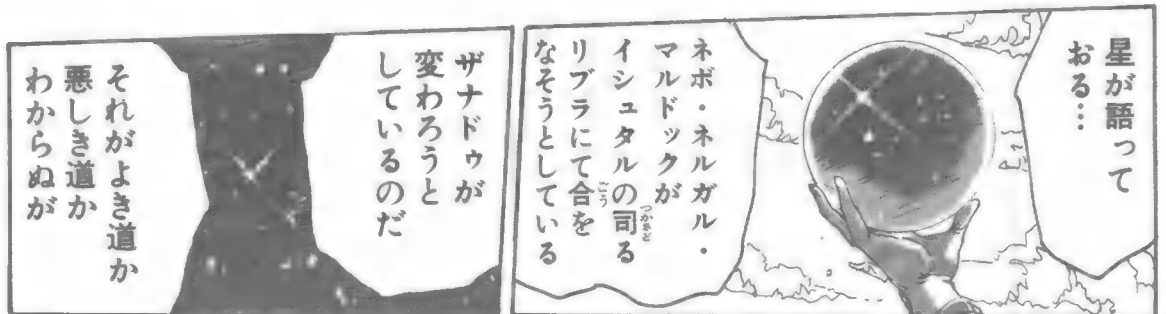 星が語って
おる…
ネボ・ネルガル・
マルドックが
イシュタルの司る
リブラにて合を
なそうとしている
ザナドゥが
変わろうと
しているのだ
それがよき道か
悪しき道か
わからぬが